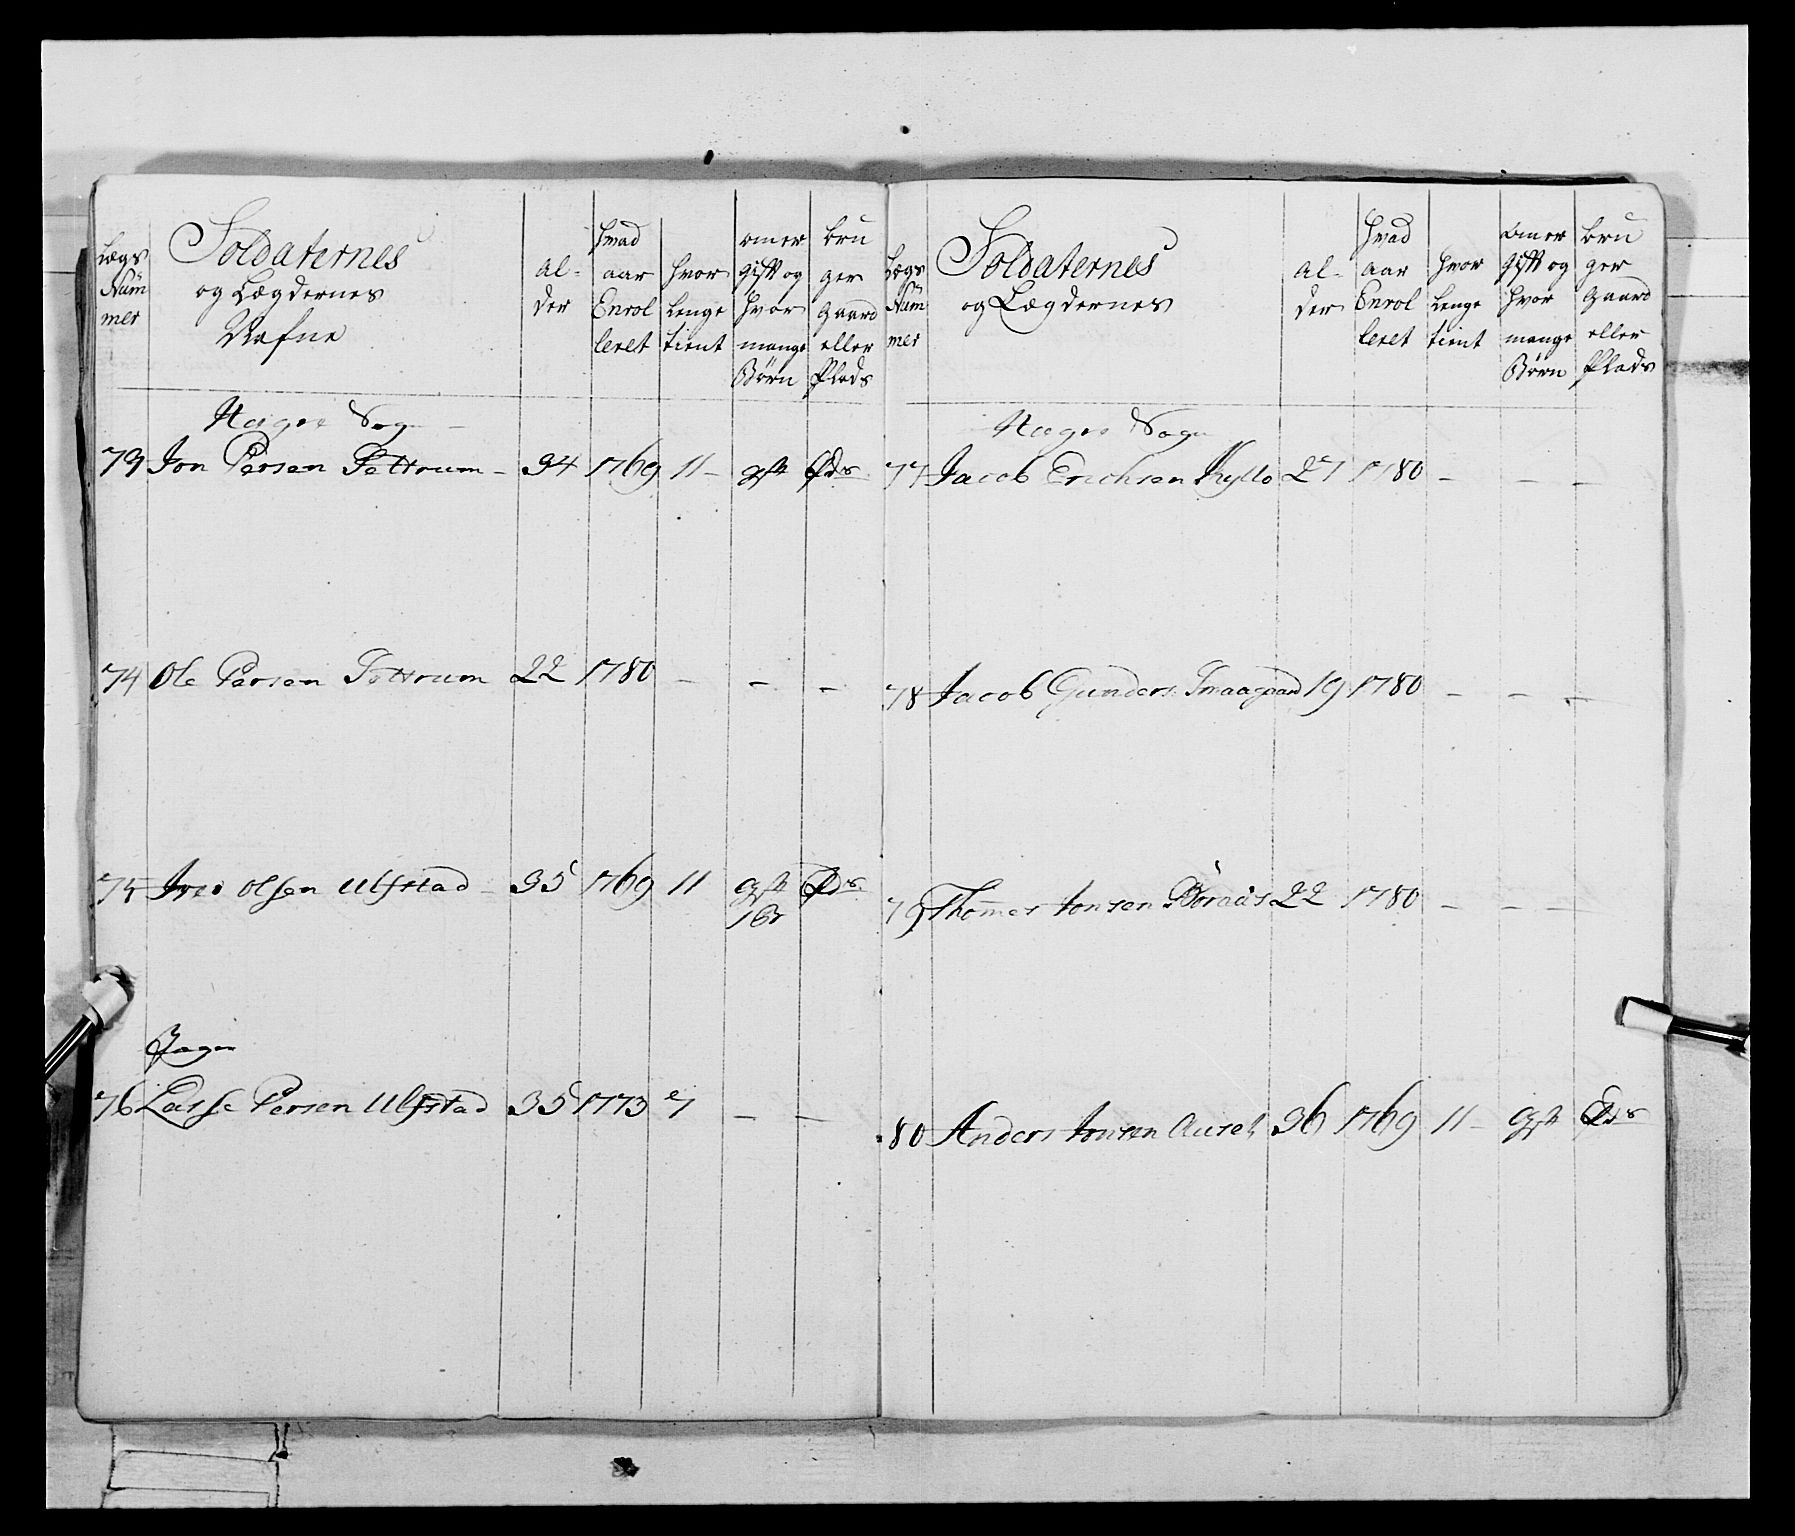 Lægs Num mer
Soldaternes og Lægdernes Nafne
Al- der
Hvad aar Enrol leret
Hvor lenge tient
om er gift og Hvor mange Børn
bru ger gaard eller Plads
Hægre Sogn
73 Jon Persen Fettrum - 34 1769 11 - gft Pds
74 Ole Persen Fettrum 22 1780 - - -
75 Olsen Ulfstad - 35 1769 11 gft Pds
1 br
Jæger
76 Lasse Persen Ulfstad 35 1773 7 - -
Lægs Num mer
Soldaternes og Lægdernes
Al- der
Hvad aar Enrol leret
Hvor lenge tient
om er gift og Hvor mange Børn
bru ger gaard eller Plads
Hægre Sogn
77 Jacob Erichsen Kyllo 27 1780 - - -
78 Jacob Gunders: Smaagaard 19 1780 - - -
79 Thommes Jonsen Boraas 22 1780 - - -
80 Anders Jonsen 36 1769 11 - gft Pds